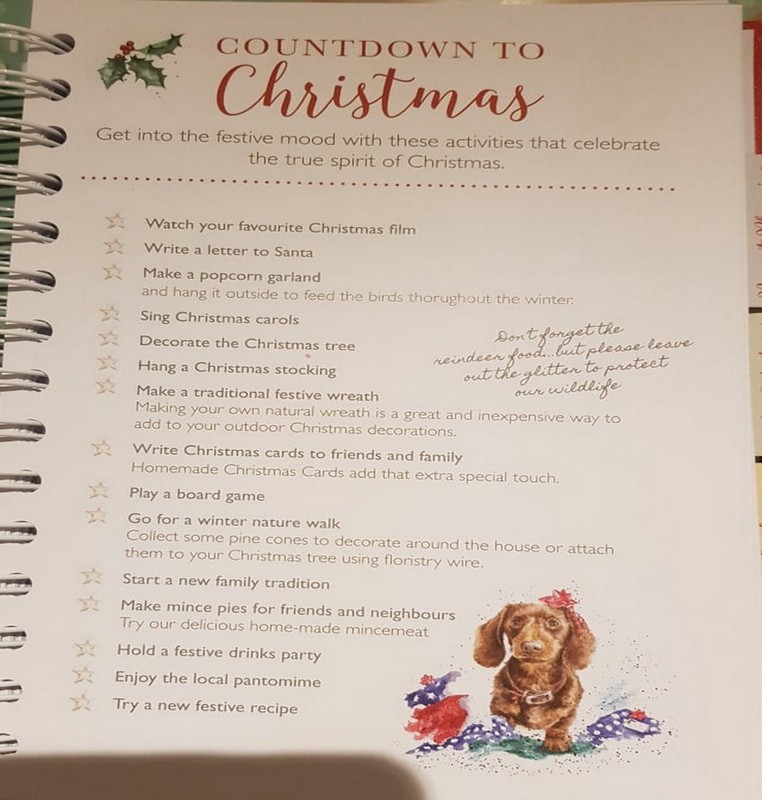 COUNTDOWN TO
Christmas
Get into the festive mood with these activities that celebrate
the true spirit of Christmas.
Watch your favourite Christmas film
Write a letter to Santa
Make a popcorn garland
and hang it outside to feed the birds thorughout the winter.
Sing Christmas carols
Decorate the Christmas tree
Hang a Christmas stocking
Don't forget the
reindeer food...but please leave
out the glitter to protect
our wildlife
Make a traditional festive wreath
Making your own natural wreath is a great and inexpensive way to
add to your outdoor Christmas decorations.
Write Christmas cards to friends and family
Homemade Christmas Cards add that extra special touch.
Play a board game
Go for a winter nature walk
Collect some pine cones to decorate around the house or attach
them to your Christmas tree using floristry wire.
Start a new family tradition
Make mince pies for friends and neighbours
Try our delicious home-made mincemeat
Hold a festive drinks party
Enjoy the local pantomime
Try a new festive recipe